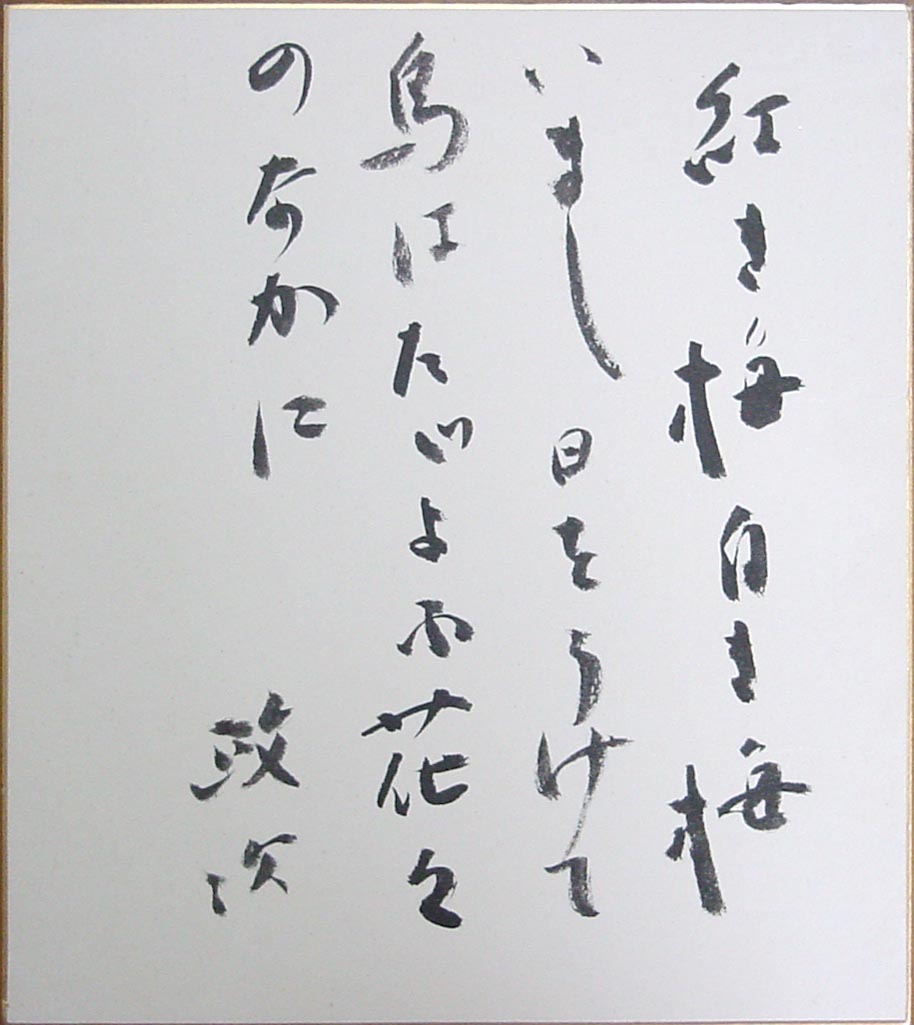 紅き梅白き梅
いまし日をうけて
鳥はたゞよふ花々
のなかに
政次